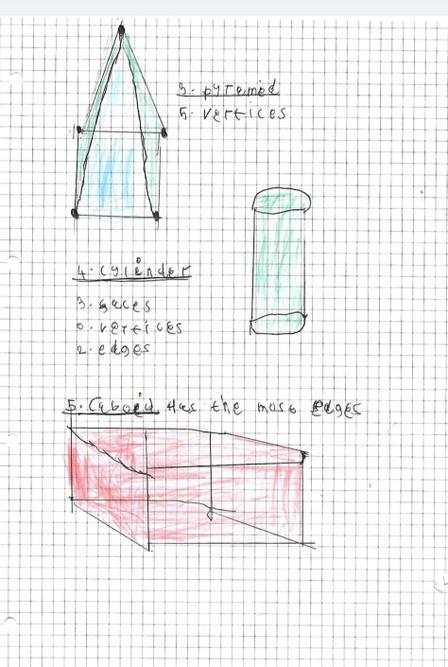 3. pyramid
5. vertices
4. cylinder
3. faces
0. vertices
2. edges
5. Cuboid Has the most edges